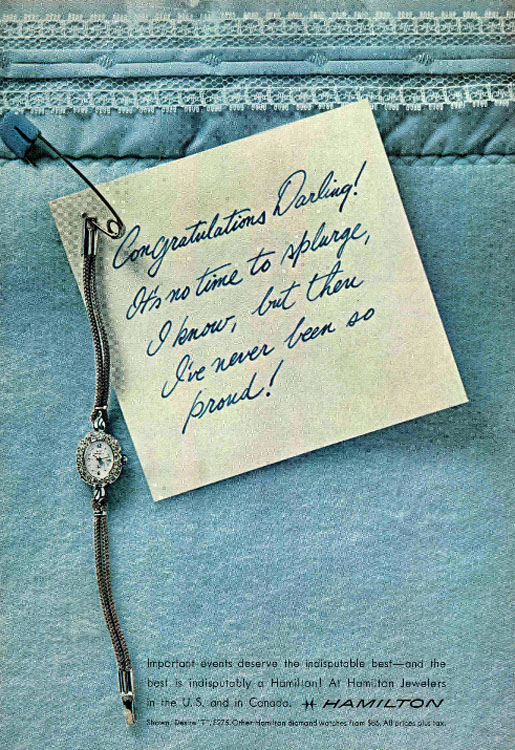 Congratulations Darling!
It's no time to splurge,
I know, but then
I've never been so
proud!
Important events deserve the indisputable best—and the
best is indisputably a Hamilton! At Hamilton Jewelers
in the U.S. and in Canada. HAMILTON
Shown, Desire "T", $275. Other Hamilton diamond watches from $65. All prices plus tax.